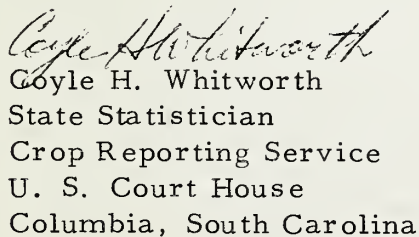 Coyle H Whitworth
Coyle H. Whitworth
State Statistician
Crop Reporting Service
U. S. Court House
Columbia, South Carolina